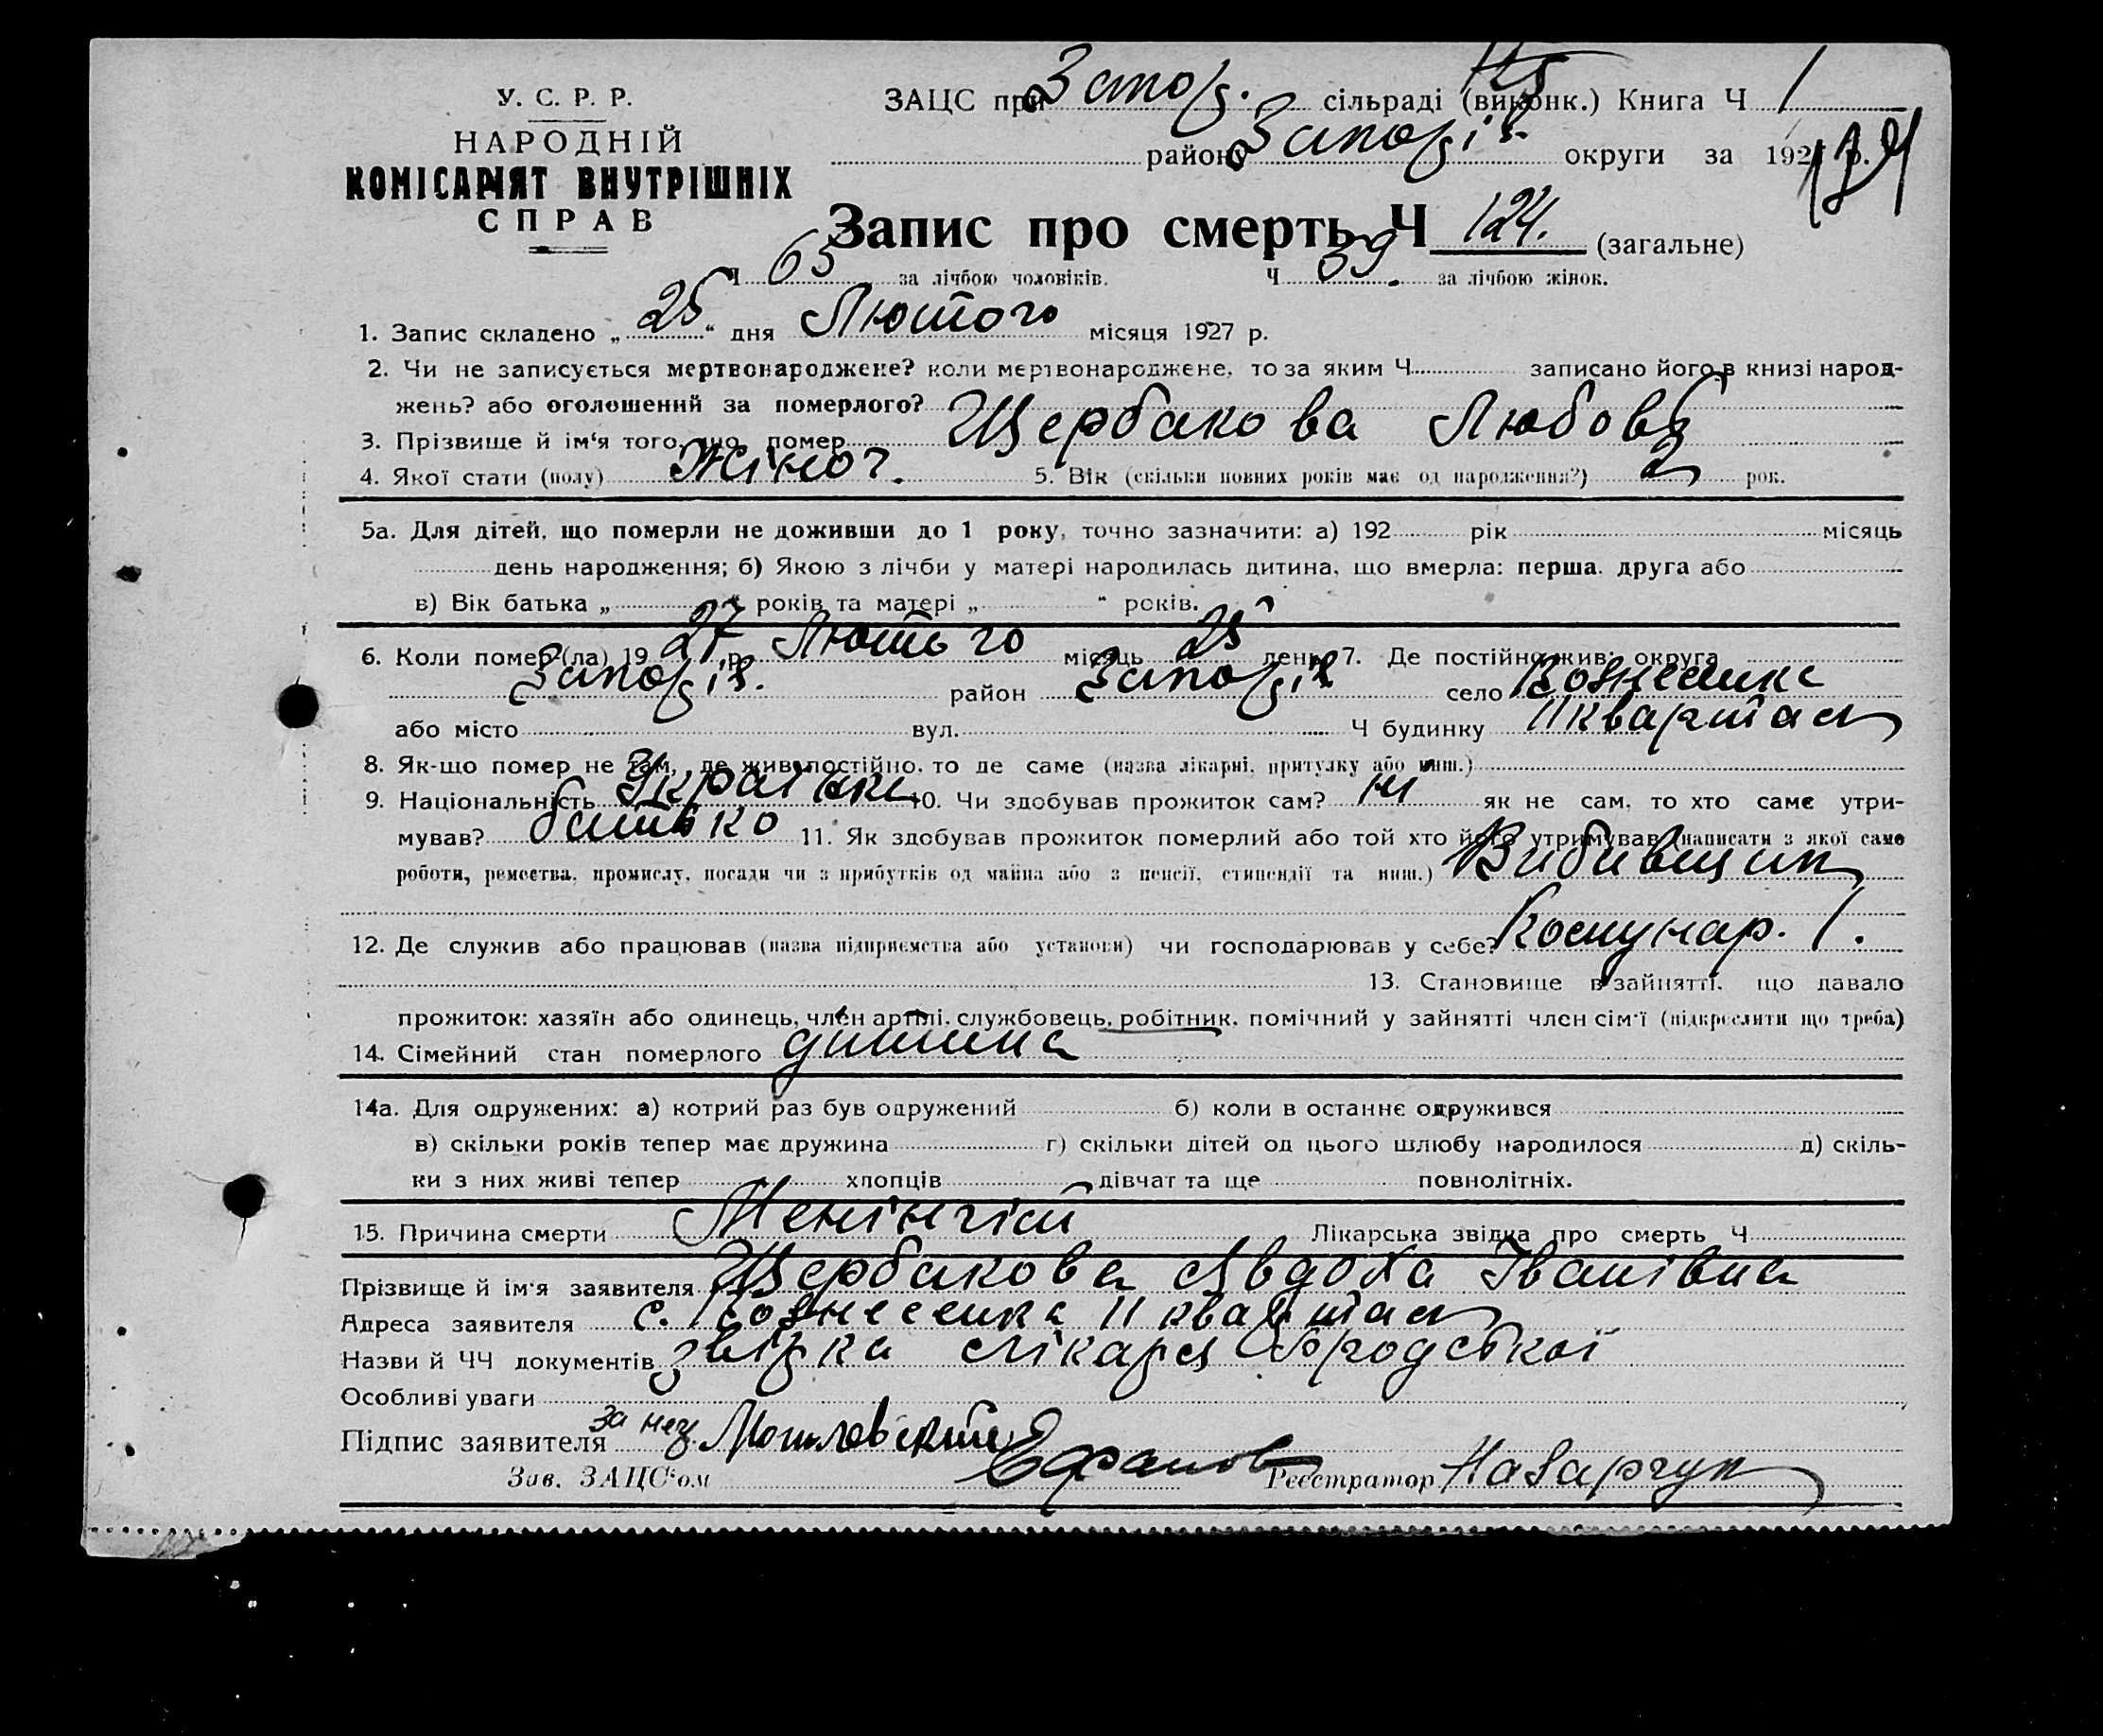 У. С. Р. Р.
НАРОДНІЙ
КОМІСАРІЯТ ВНУТРІШНІХ
СПРАВ
ЗАЦС при Запоріз. сільраді (виконк.) Книга Ч 1
район Запоріз. округи за 192 р.
Запис про смерть Ч 124. (загальне)
Ч 65 за лічбою чоловіків. Ч 59. за лічбою жінок.
1. Запис складено „25“ дня Лютого місяця 1927 р.
2. Чи не записується мертвонароджене? коли мертвонароджене, то за яким Ч. записано його в книзі народ-
жень? або оголошений за померлого?
3. Прізвище й ім'я того, що помер Щербакова Любов
4. Якої стати (полу) Жіноч. 5. Вік (скільки повних років має од народження?) 2 рок.
5а. Для дітей, що померли не доживши до 1 року, точно зазначити: а) 192 рік місяць
день народження; б) Якою з лічби у матері народилась дитина, що вмерла: перша, друга або
в) Вік батька „ “ років та матері „ “ років.
6. Коли помер (ла) 1927 р. Лютого місяць 25 день 7. Де постійно жив: округа
Запоріз. район Запоріз село Вознесенка
або місто вул. Ч будинку 11 квартал
8. Як-що помер не там, де жив постійно, то де саме (назва лікарні, притулку або инш.)
9. Національність Українка 10. Чи здобував прожиток сам? ні як не сам, то хто саме утри-
мував? батько 11. Як здобував прожиток померлий або той хто його утримував (написати з якої саме
роботи, ремества, промислу, посади чи з прибутків од майна або з пенсії, стипендії та инш.) Вибивщик
12. Де служив або працював (назва підприємства або установи) чи господарював у себе? Комунар.
13. Становище в зайнятті, що давало
прожиток: хазяїн або одинець, член артілі, службовець, робітник, помічний у зайнятті член сім'ї (підкреслити що треба)
14. Сімейний стан померлого дитина
14а. Для одружених: а) котрий раз був одружений б) коли в останнє одружився
в) скільки років тепер має дружина г) скільки дітей од цього шлюбу народилося д) скіль-
ки з них живі тепер хлопців дівчат та ще повнолітніх.
15. Причина смерти Менінгіт Лікарська звідка про смерть Ч
Прізвище й ім'я заявителя Щербакова Явдоха Іванівна
Адреса заявителя с. Вознесенка 11 квартал
Назви й ЧЧ документів звідка лікаря Бродської
Особливі уваги
Підпис заявителя за неї
Зав. ЗАЦС'ом Реєстратор Назарчук